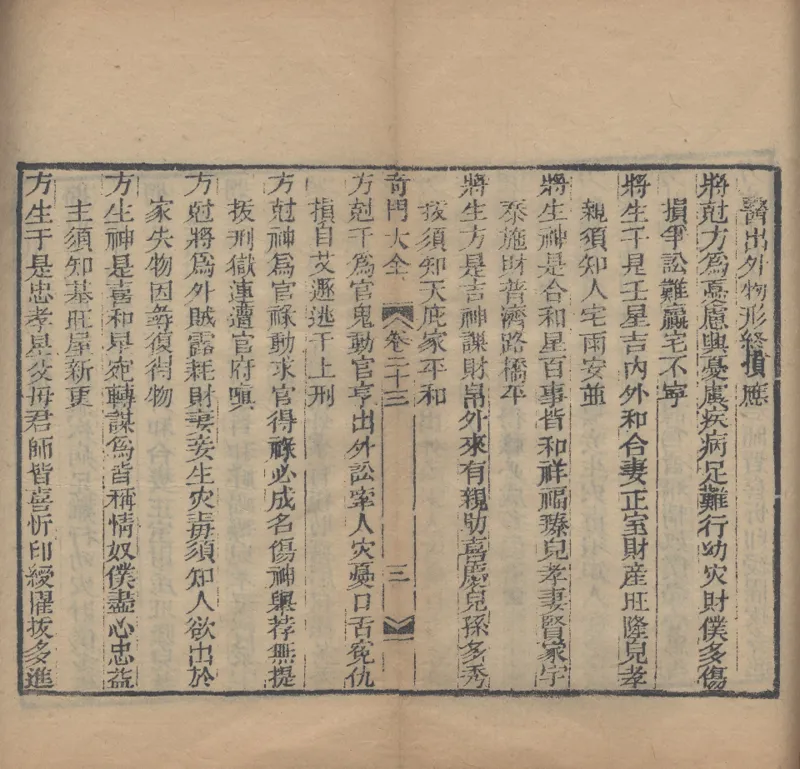 醫出外物形終損應
將尅方為憂慮興憂慮疾病足難行幼灾財僕多傷
損爭訟難贏宅不寧
將生干是壬星吉內外和合妻正室財産旺隆兒孝
親須知人宅兩安並
將生神是合和星百事皆和祥福臻兒孝妻賢家字
泰施財普濟路橋平
將生方是吉神謀財帛外來有親助喜慶兒孫多秀
拔須知天庇家平和
奇門大全 卷二十三 三
方尅干為官鬼動官亨出外訟牢人灾憂口舌寃仇
損自艾遯逃干上刑
方尅神為官祿動求官得祿必成名傷神舉荐無提
拔刑獄連遭官府嗔
方尅將為外賊露耗財妻妾生灾毒須知人欲出於
家失物因尋復得物
方生神是喜和星宛轉謀為皆稱情奴僕盡心忠益
主須知基旺屋新更
方生于是忠孝星父母君師皆喜忻印綬擢拔多進